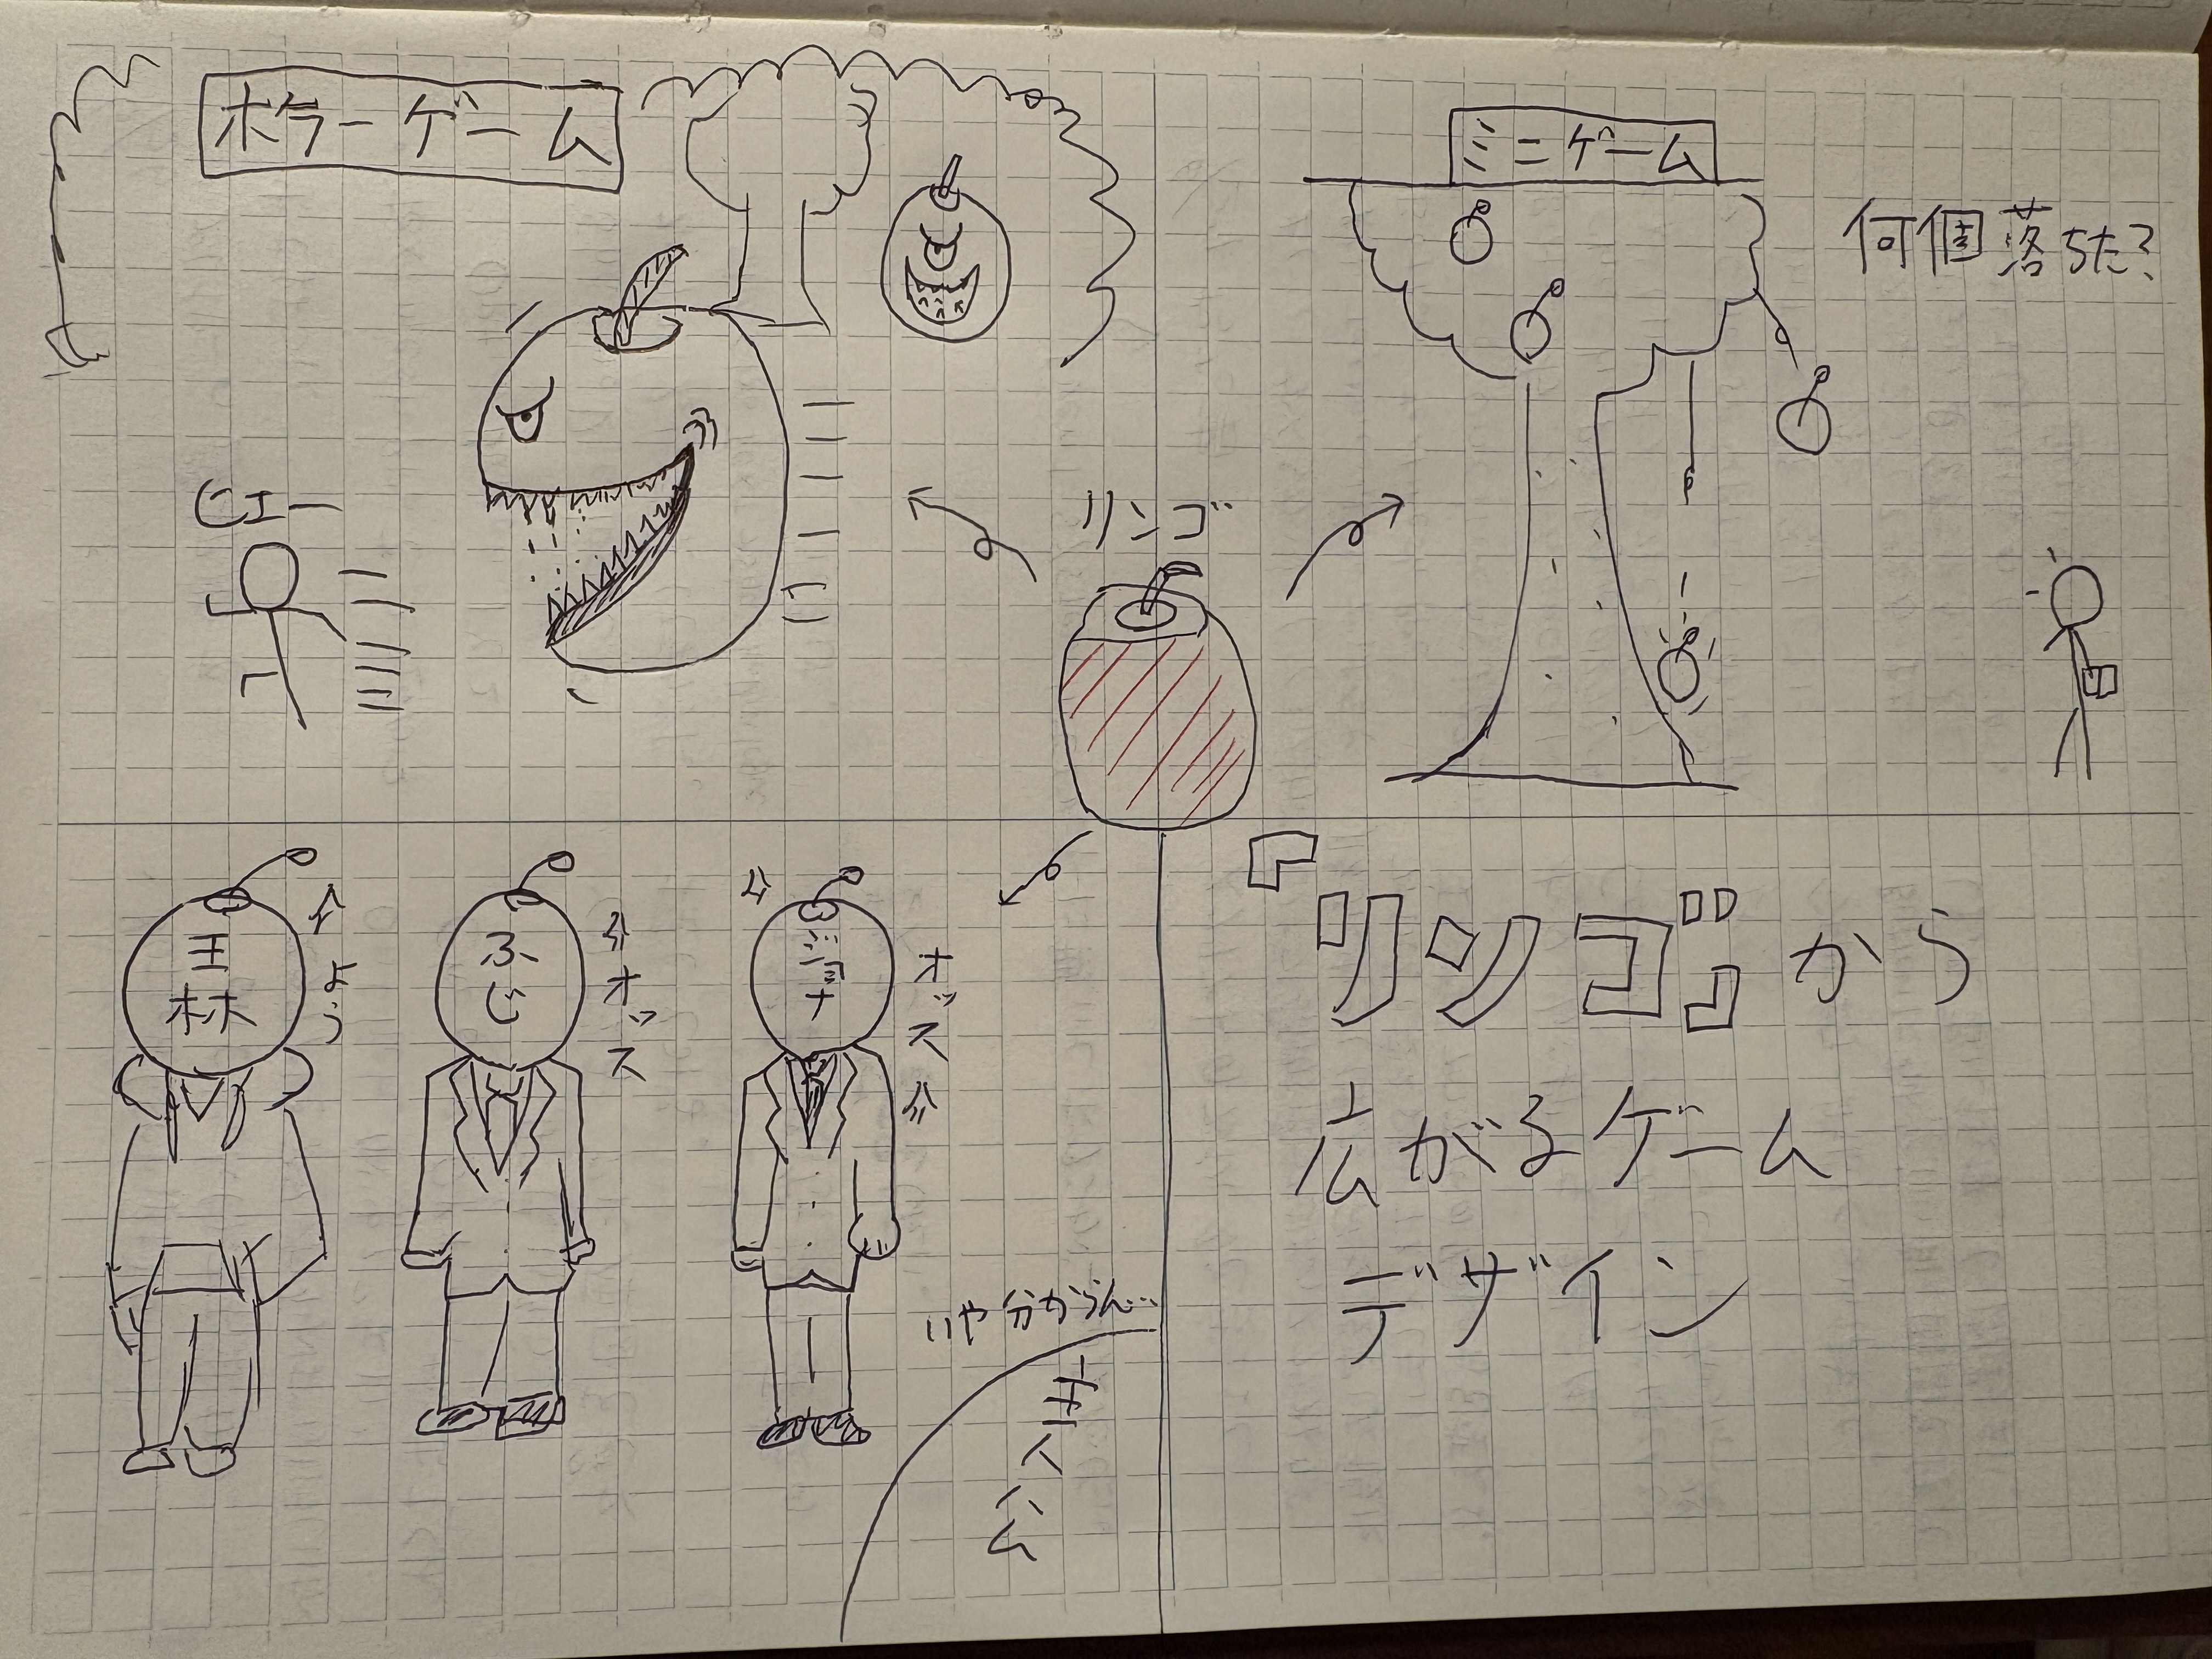 ホラーゲーム
ヒエー
リンゴ
ミニゲーム
何個落ちた?
王林
よう
ふじ
オッス
オッス
いや分からん…
主人公
「リンゴ」から
広がるゲーム
デザイン